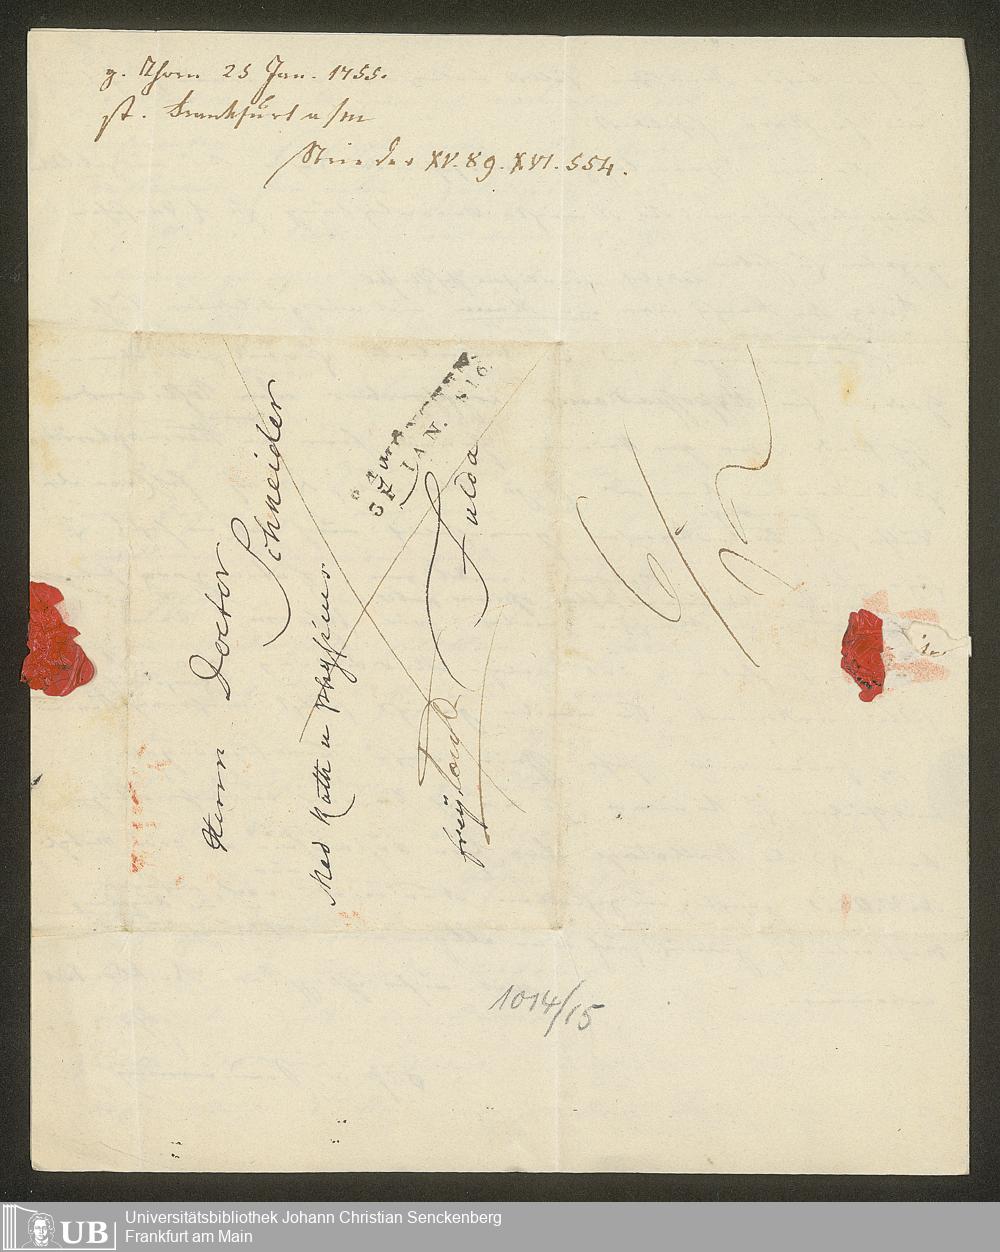 g. Thorn 25 Jan. 1755.
st. Frankfurt a/m
Strieder XV. 89. XVI. 554.
Herrn Doctor Schneider
Med Rath u Physicus
freÿ
Fulda
JAN. 816
1014/15
UB
Universitätsbibliothek Johann Christian Senckenberg
Frankfurt am Main